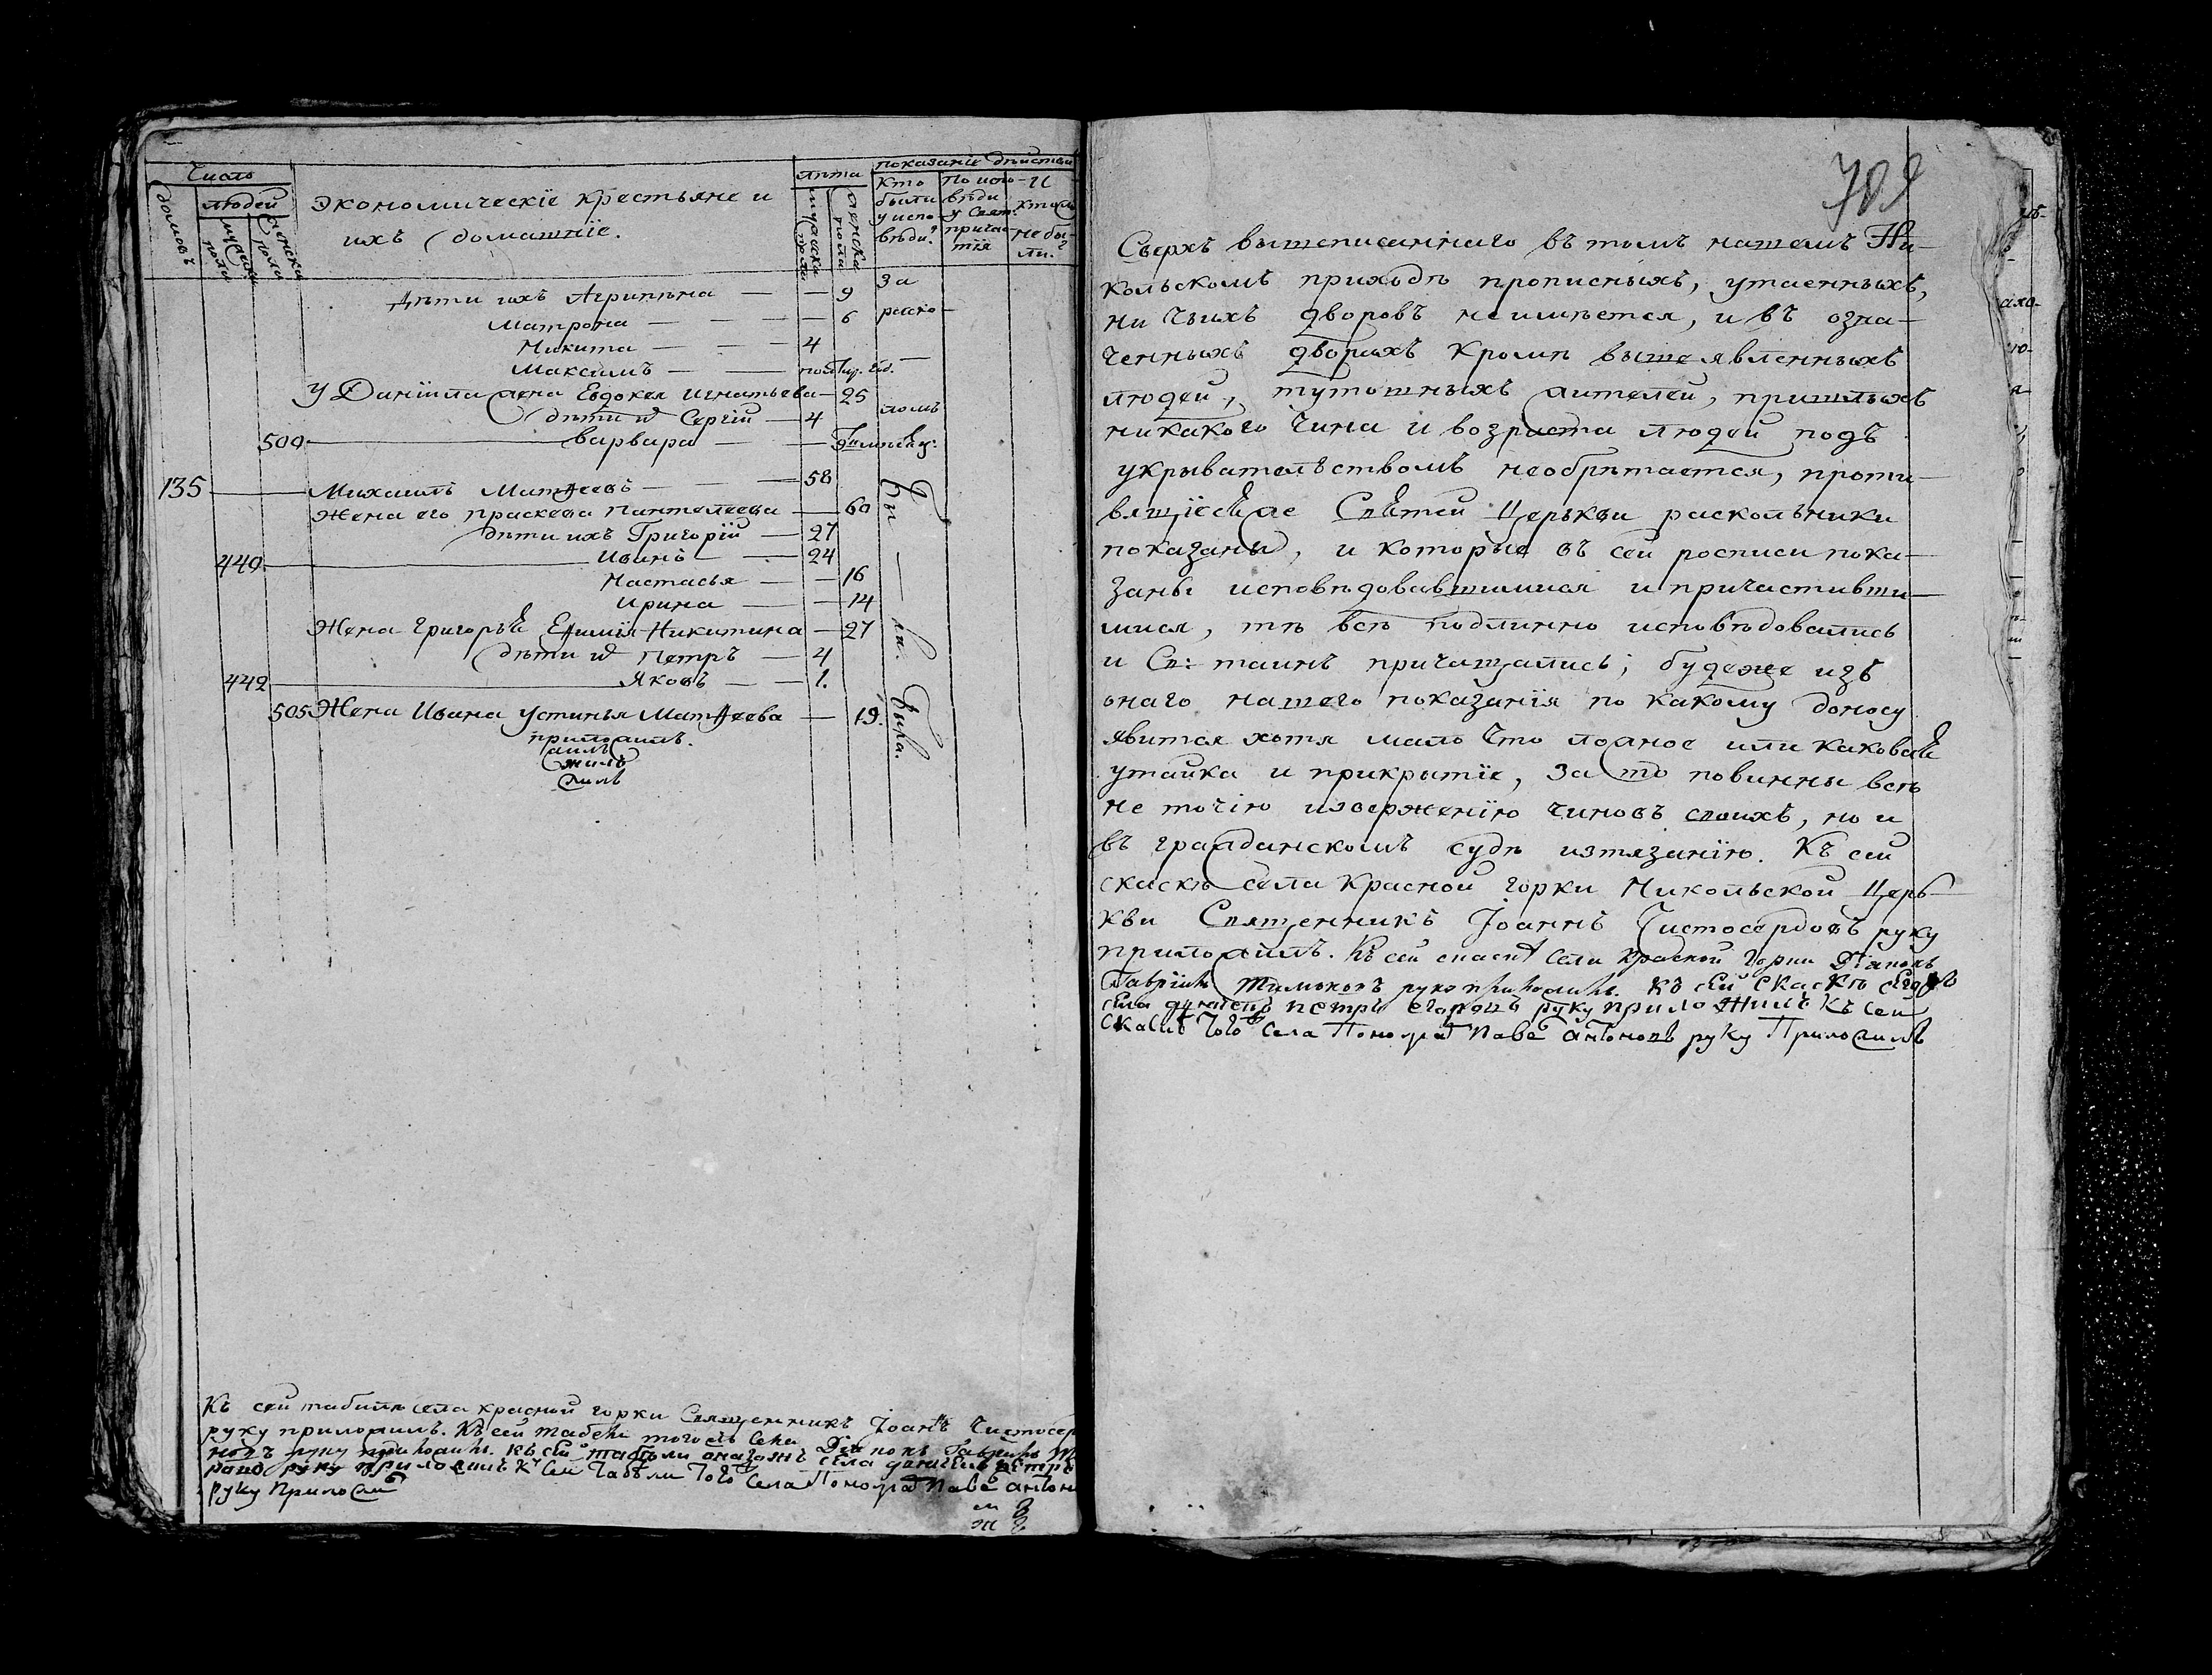 Число
домовъ
людей
мужеска пола
женска пола
Экономическіе крестьяне и
ихъ домашніе.
лѣта
мужеска пола
женска пола
показаніе дѣйства
Кто были у испо вѣди?
По испо вѣди у Свят. прича стія
И кто
не бы ли?
Дѣти ихъ Агрипѣна — — 9 За
Матрона — — — 6 раско—
Микита — — — 4
Максимъ — —
У Даніила жена Евдокея Игнатьева — 25
дѣти ихъ Сергій — 4 ломъ
500 — варвара —
135 — Михаилъ Матѳеевъ — — 58
Жена его праскева Пантелѣева — 60
дѣти ихъ Григорій — 27
440 — Иванъ — 24
Настасья — — 16
Ирина — — 14
Жена Григорья Ефимія Никитина — 27
дѣти ихъ Петръ — 4
442 — Яковъ — 1.
505 Жена Ивана Устинья Матѳеева — 19.
Бы — ли. Быва.
приложилъ.
жилъ
жилъ
жилъ
Къ сей табели села красной горки Священникъ Іоаннъ Чистосер
руку приложилъ. Къ сей табели тогожъ села Діаконъ Гавріилъ
руку приложилъ. Къ сей табели онагожъ села дьячекъ петръ
руку приложилъ Къ сей табели того села Пономарь Паве антон
руку Приложи
709
Сверхъ вышеписаннаго въ томъ нашемъ Ни-
кольскомъ приходѣ прописныхъ, утаенныхъ,
ни чьихъ дворовъ неимѣется, и въ озна-
ченныхъ дворахъ кромѣ вышеявленныхъ
людей, тутошныхъ жителей, пришлыхъ
никакого чина и возраста людей подъ
укрывательствомъ необрѣтается, проти-
вящіесяже Святей Церькви раскольники
показаны, и которые въ сей росписи пока-
заны исповѣдовавшимися и причастивши-
мися, тѣ всѣ подлинно исповѣдовались
и Св: таинъ причащались; будеже изъ
онаго нашего показанія по какому доносу
явится хотя мало что ложное или каковая
утайка и прикрытіе, За то повинны всѣ
не точію изверженію чиновъ своихъ, но и
въ гражданскомъ судѣ изтязанію. Къ сей
скаскѣ села Красной горки Никольской Церь-
кви Священникъ Іоаннъ Чистосердовъ руку
приложилъ. Къ сей скаскѣ села Красной Горки Діаконъ
Гавріилъ Тимоѳеевъ руку приложилъ. Къ сей скаскѣ
села дьячекъ петръ егоровъ руку приложилъ Къ сей
скаскѣ того села Пономарь Паве антоновъ руку Приложилъ